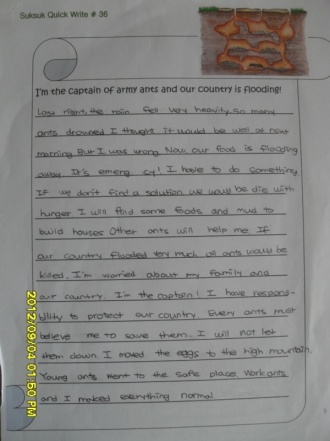 Suksuk Quick Write # 36
I'm the captain of army ants and our country is flooding!
Last night, the rain fell very heavily, so many
ants drowned I thought it would be well at next
morning But I was wrong Now our food is flooding
away. It's emerg cy! I have to do something
If we don't find a solution we would be die with
hunger I will find some foods and mud to
build houses Other ants will help me If
our country flooded very much all ants would be
killed. I'm worried about my family and
our country. I'm the captain! I have respons-
bility to protect our country. Every ants must
believe me to save them. I will not let
them down I moved the eggs to the high mountain.
Young ants went to the safe place. Work ants
and I maked everything normal
2012/09/04 01:50 PM